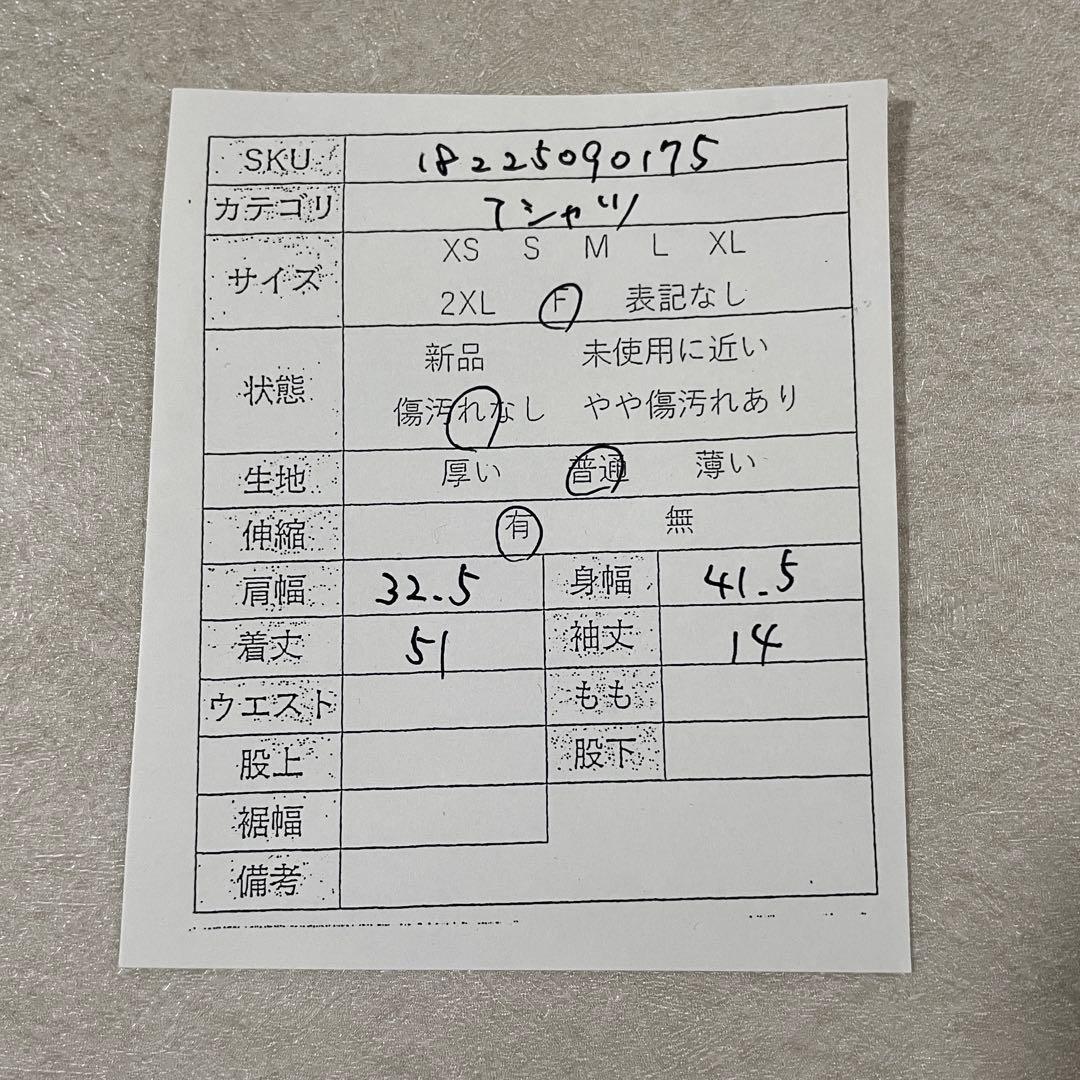 SKU 18225090175
カテゴリ Tシャツ
サイズ XS S M L XL
2XL F 表記なし
状態 新品 未使用に近い
傷汚れなし やや傷汚れあり
生地 厚い 普通 薄い
伸縮 有 無
肩幅 32.5 身幅 41.5
着丈 51 袖丈 14
ウエスト もも
股上 股下
裾幅
備考